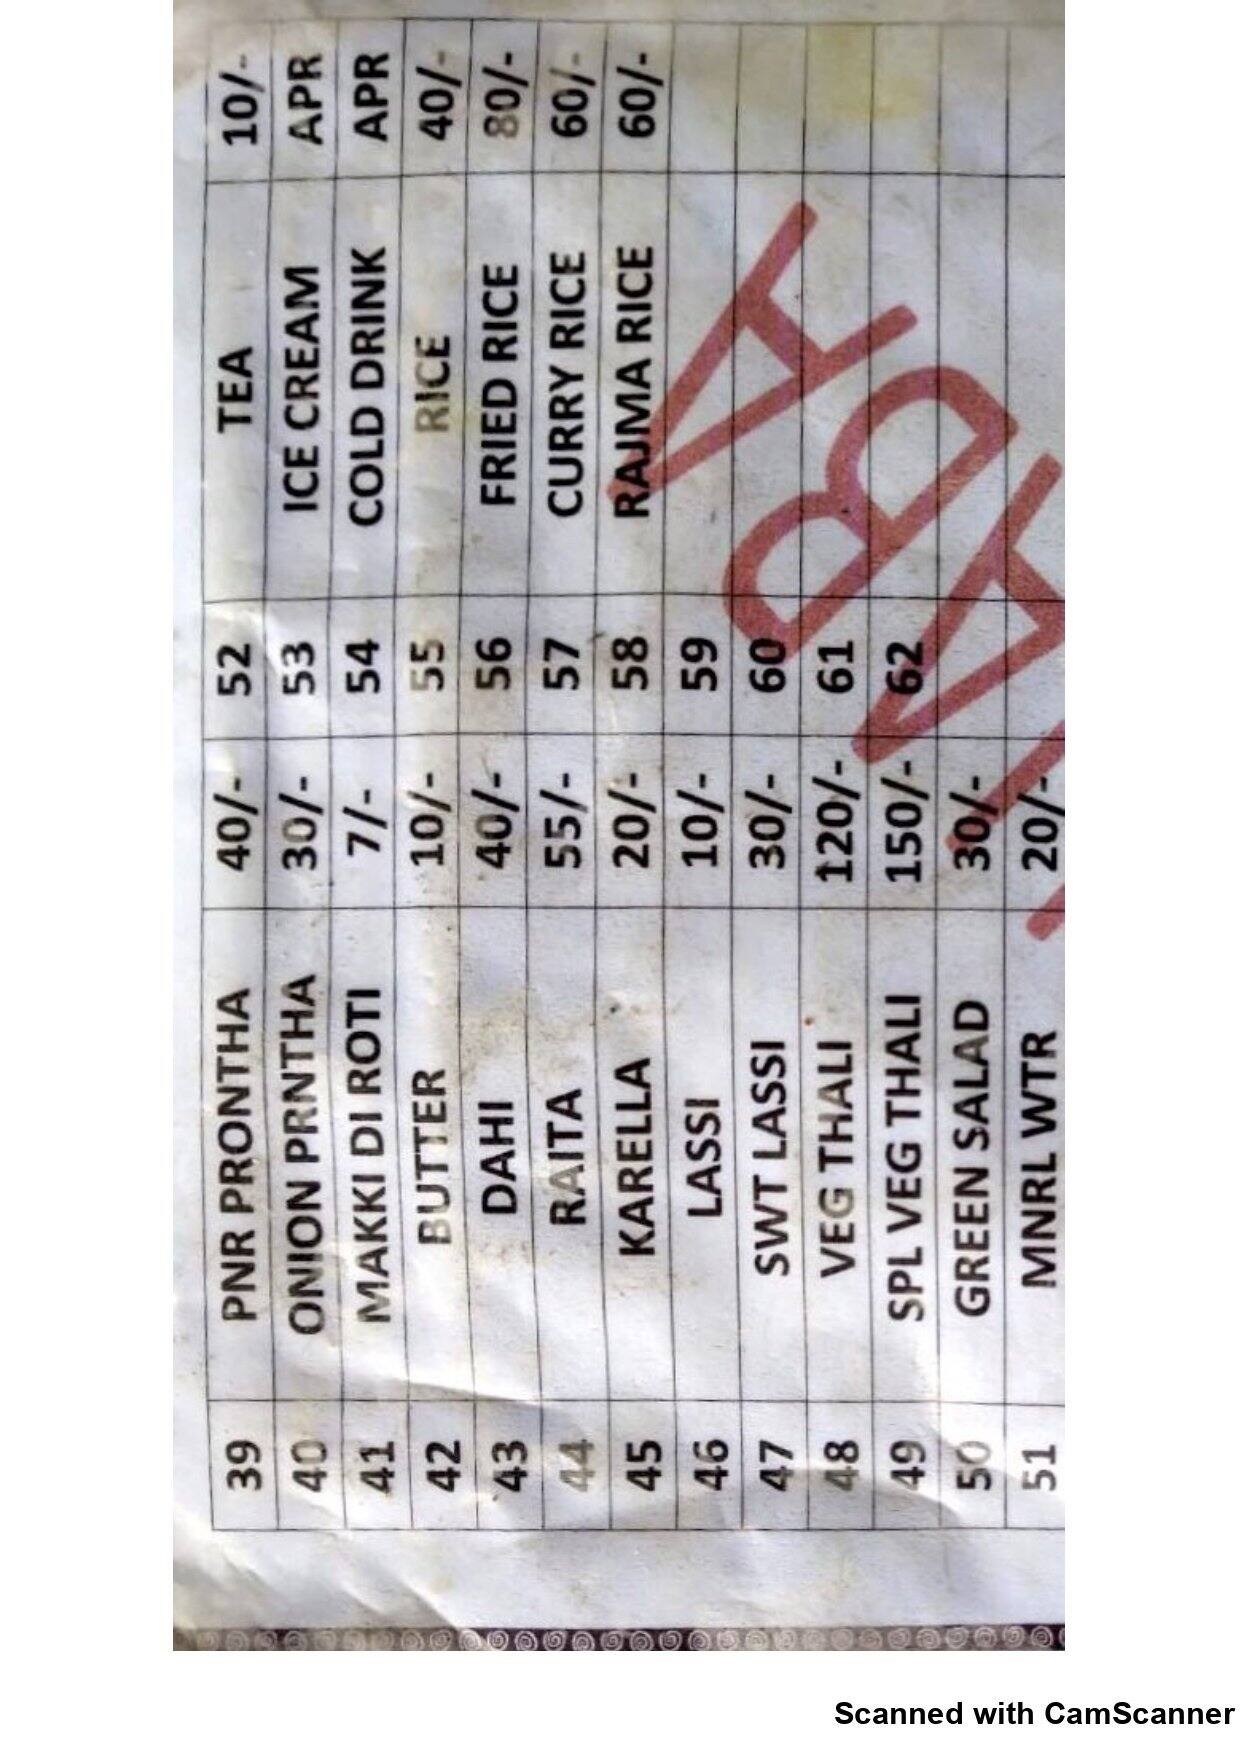 39 PNR PRONTHA 40/- 52 TEA 10/-
40 ONION PRNTHA 30/- 53 ICE CREAM APR
41 MAKKI DI ROTI 7/- 54 COLD DRINK APR
42 BUTTER 10/- 55 RICE 40/-
43 DAHI 40/- 56 FRIED RICE 80/-
44 RAITA 55/- 57 CURRY RICE 60/-
45 KARELLA 20/- 58 RAJMA RICE 60/-
46 LASSI 10/- 59
47 SWT LASSI 30/- 60
48 VEG THALI 120/- 61
49 SPL VEG THALI 150/- 62
50 GREEN SALAD 30/-
51 MNRL WTR 20/-
Scanned with CamScanner